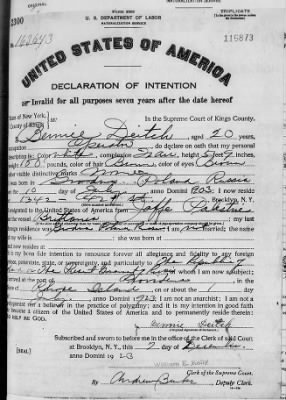 ORIGINAL
TRIPLICATE
2300
U. S. DEPARTMENT OF LABOR
NATURALIZATION SERVICE
162643
116873
UNITED STATES OF AMERICA
DECLARATION OF INTENTION
Invalid for all purposes seven years after the date hereof
State of New York,
County of Kings,
In the Supreme Court of Kings County.
Bennie Deitch, aged 20 years,
Operator, do declare on oath that my personal
description is: Color White, complexion, height 5 feet 9 inches,
weight 120 pounds, color of hair Brown, color of eyes Brown
other visible distinctive marks None
Poland Russia
on the 10 day of July, anno Domini 1903; I now reside
at 1342 - 42 St, Brooklyn, N. Y.
emigrated to the United States of America from Jaffa Palestine
on the vessel
foreign residence was; I am not married; the name
she was born at
and now resides at
It is my bona fide intention to renounce forever all allegiance and fidelity to any foreign
prince, potentate, state, or sovereignty, and particularly to The Republic of
of whom I am now subject;
arrived at the port of Providence, in the
State of Rhode Island, on or about the 1 day
of, anno Domini 1923; I am not an anarchist; I am not a
polygamist nor a believer in the practice of polygamy; and it is my intention in good faith
to become a citizen of the United States of America and to permanently reside therein:
SO HELP ME GOD.
Bennie Deitch
Subscribed and sworn to before me in the office of the Clerk of said Court
at Brooklyn, N. Y., this 7 day of December,
anno Domini 1923
[SEAL]
William E. Kelly
Clerk of the Supreme Court.
By, Deputy Clerk.